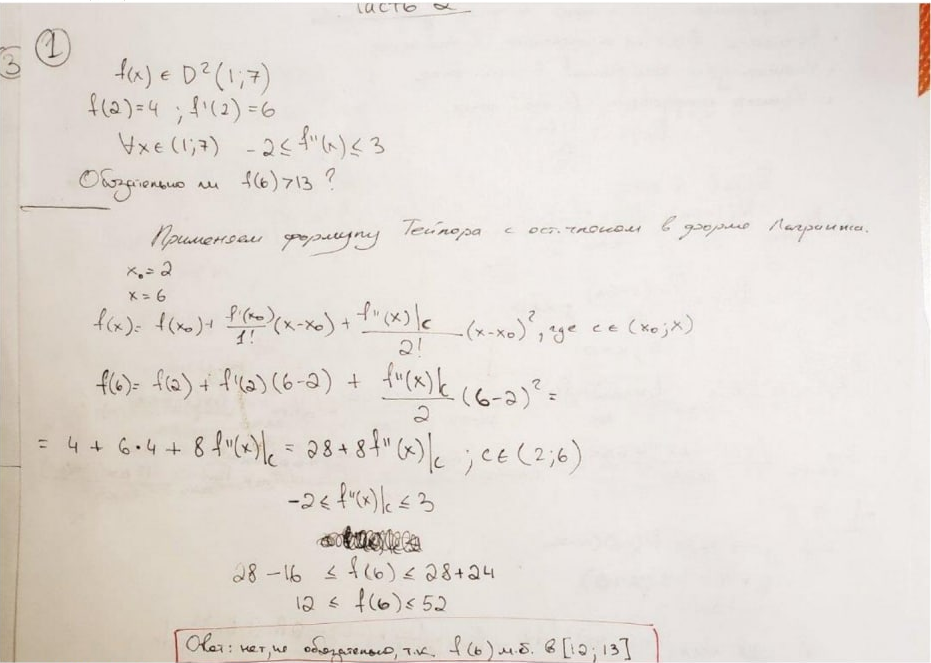 Часть 2
3
1
f(x) ∈ D²(1;7)
f(2)=4 ; f'(2)=6
∀x∈(1;7) -2 ≤ f''(x) ≤ 3
Обязательно ли f(6)>13 ?
Применяем формулу Тейлора с ост.членом в форме Лагранжа.
x₀=2
x=6
f(x)= f(x₀)+ f'(x₀)/1! (x-x₀) + f''(x)|c/2! (x-x₀)², где c ∈ (x₀;x)
f(6)= f(2) + f'(2)(6-2) + f''(x)|c/2 (6-2)² =
= 4 + 6·4 + 8 f''(x)|c = 28+8f''(x)|c ; c∈(2;6)
-2 ≤ f''(x)|c ≤ 3
28-16 ≤ f(6) ≤ 28+24
12 ≤ f(6) ≤ 52
Ответ: нет, не обязательно, т.к. f(6) м.б. в [12; 13]